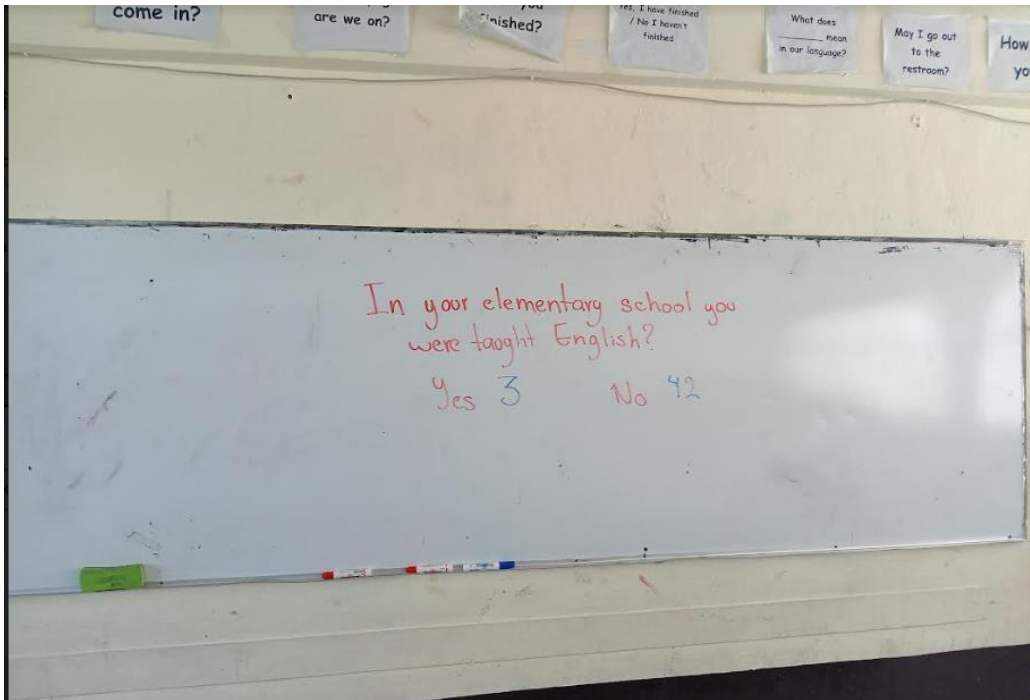 come in?
are we on?
finished?
Yes, I have finished
/ No I haven't
finished
What does
________ mean
in our language?
May I go out
to the
restroom?
How
yo
In your elementary school you
were taught English?
Yes 3 No 42